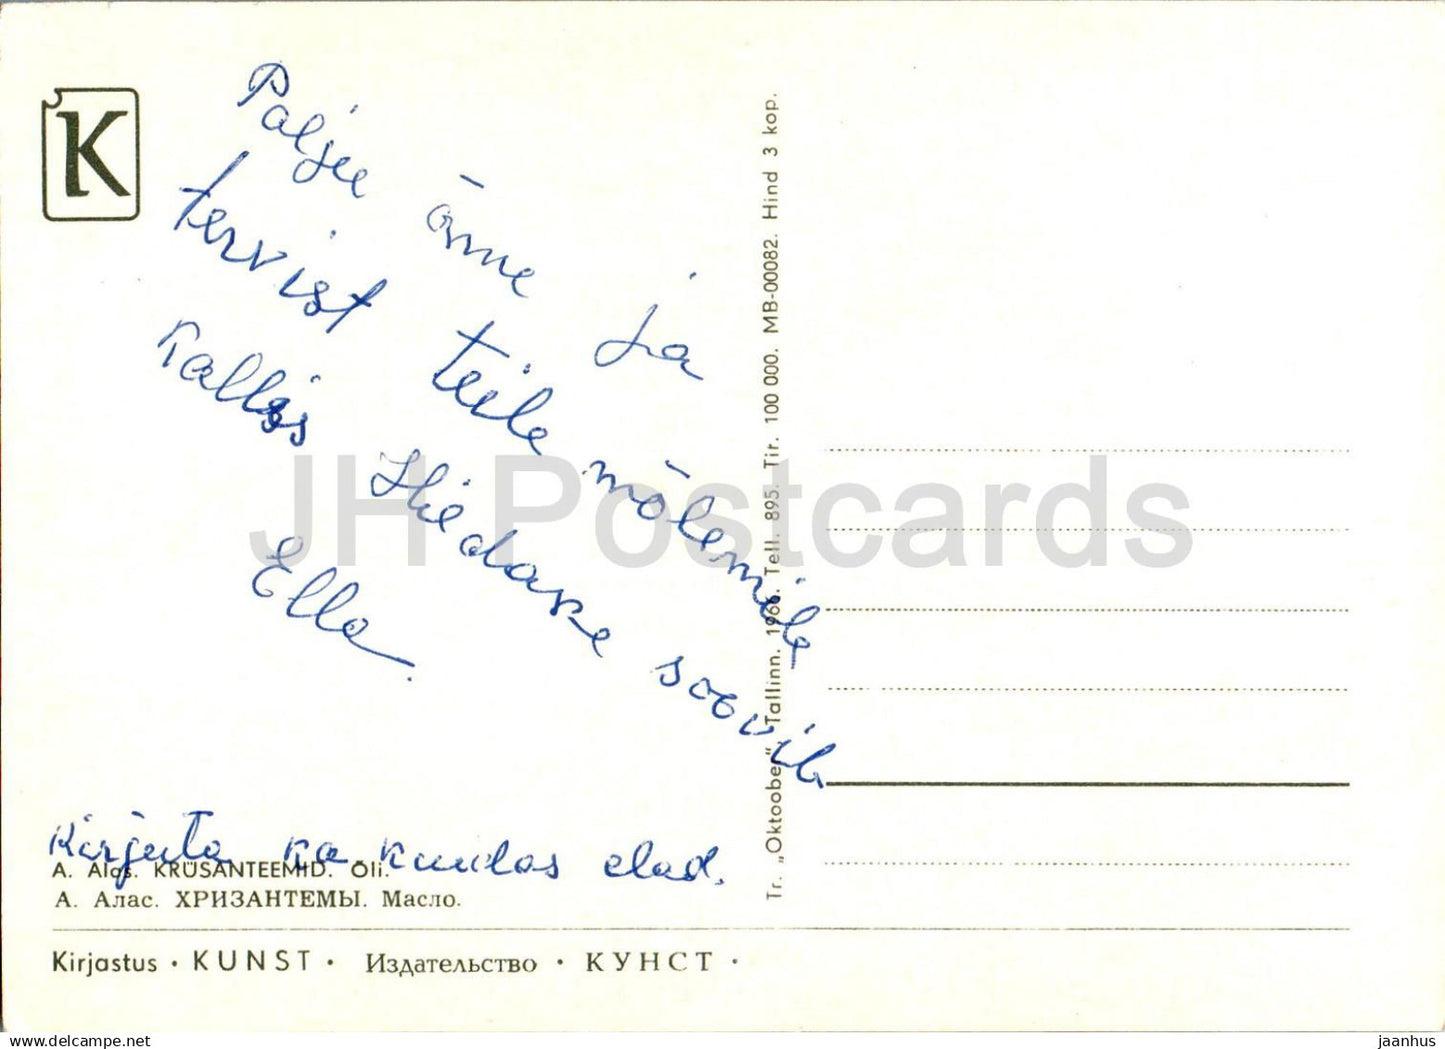 K
Palju õnne ja
tervist teile mõlemile
Kallis Hiedake soovib
Ella.
Kirjuta ka kuidas elad.
A. Alas. KRÜSANTEEMID. Õli.
А. Алас. ХРИЗАНТЕМЫ. Масло.
Kirjastus · KUNST · Издательство · КУНСТ ·
Tr. „Oktoober“ Tallinn. 1966. Tell. 895. Tir. 100 000. MB-00082. Hind 3 kop.
JH Postcards
https://www.delcampe.net
jaanhus